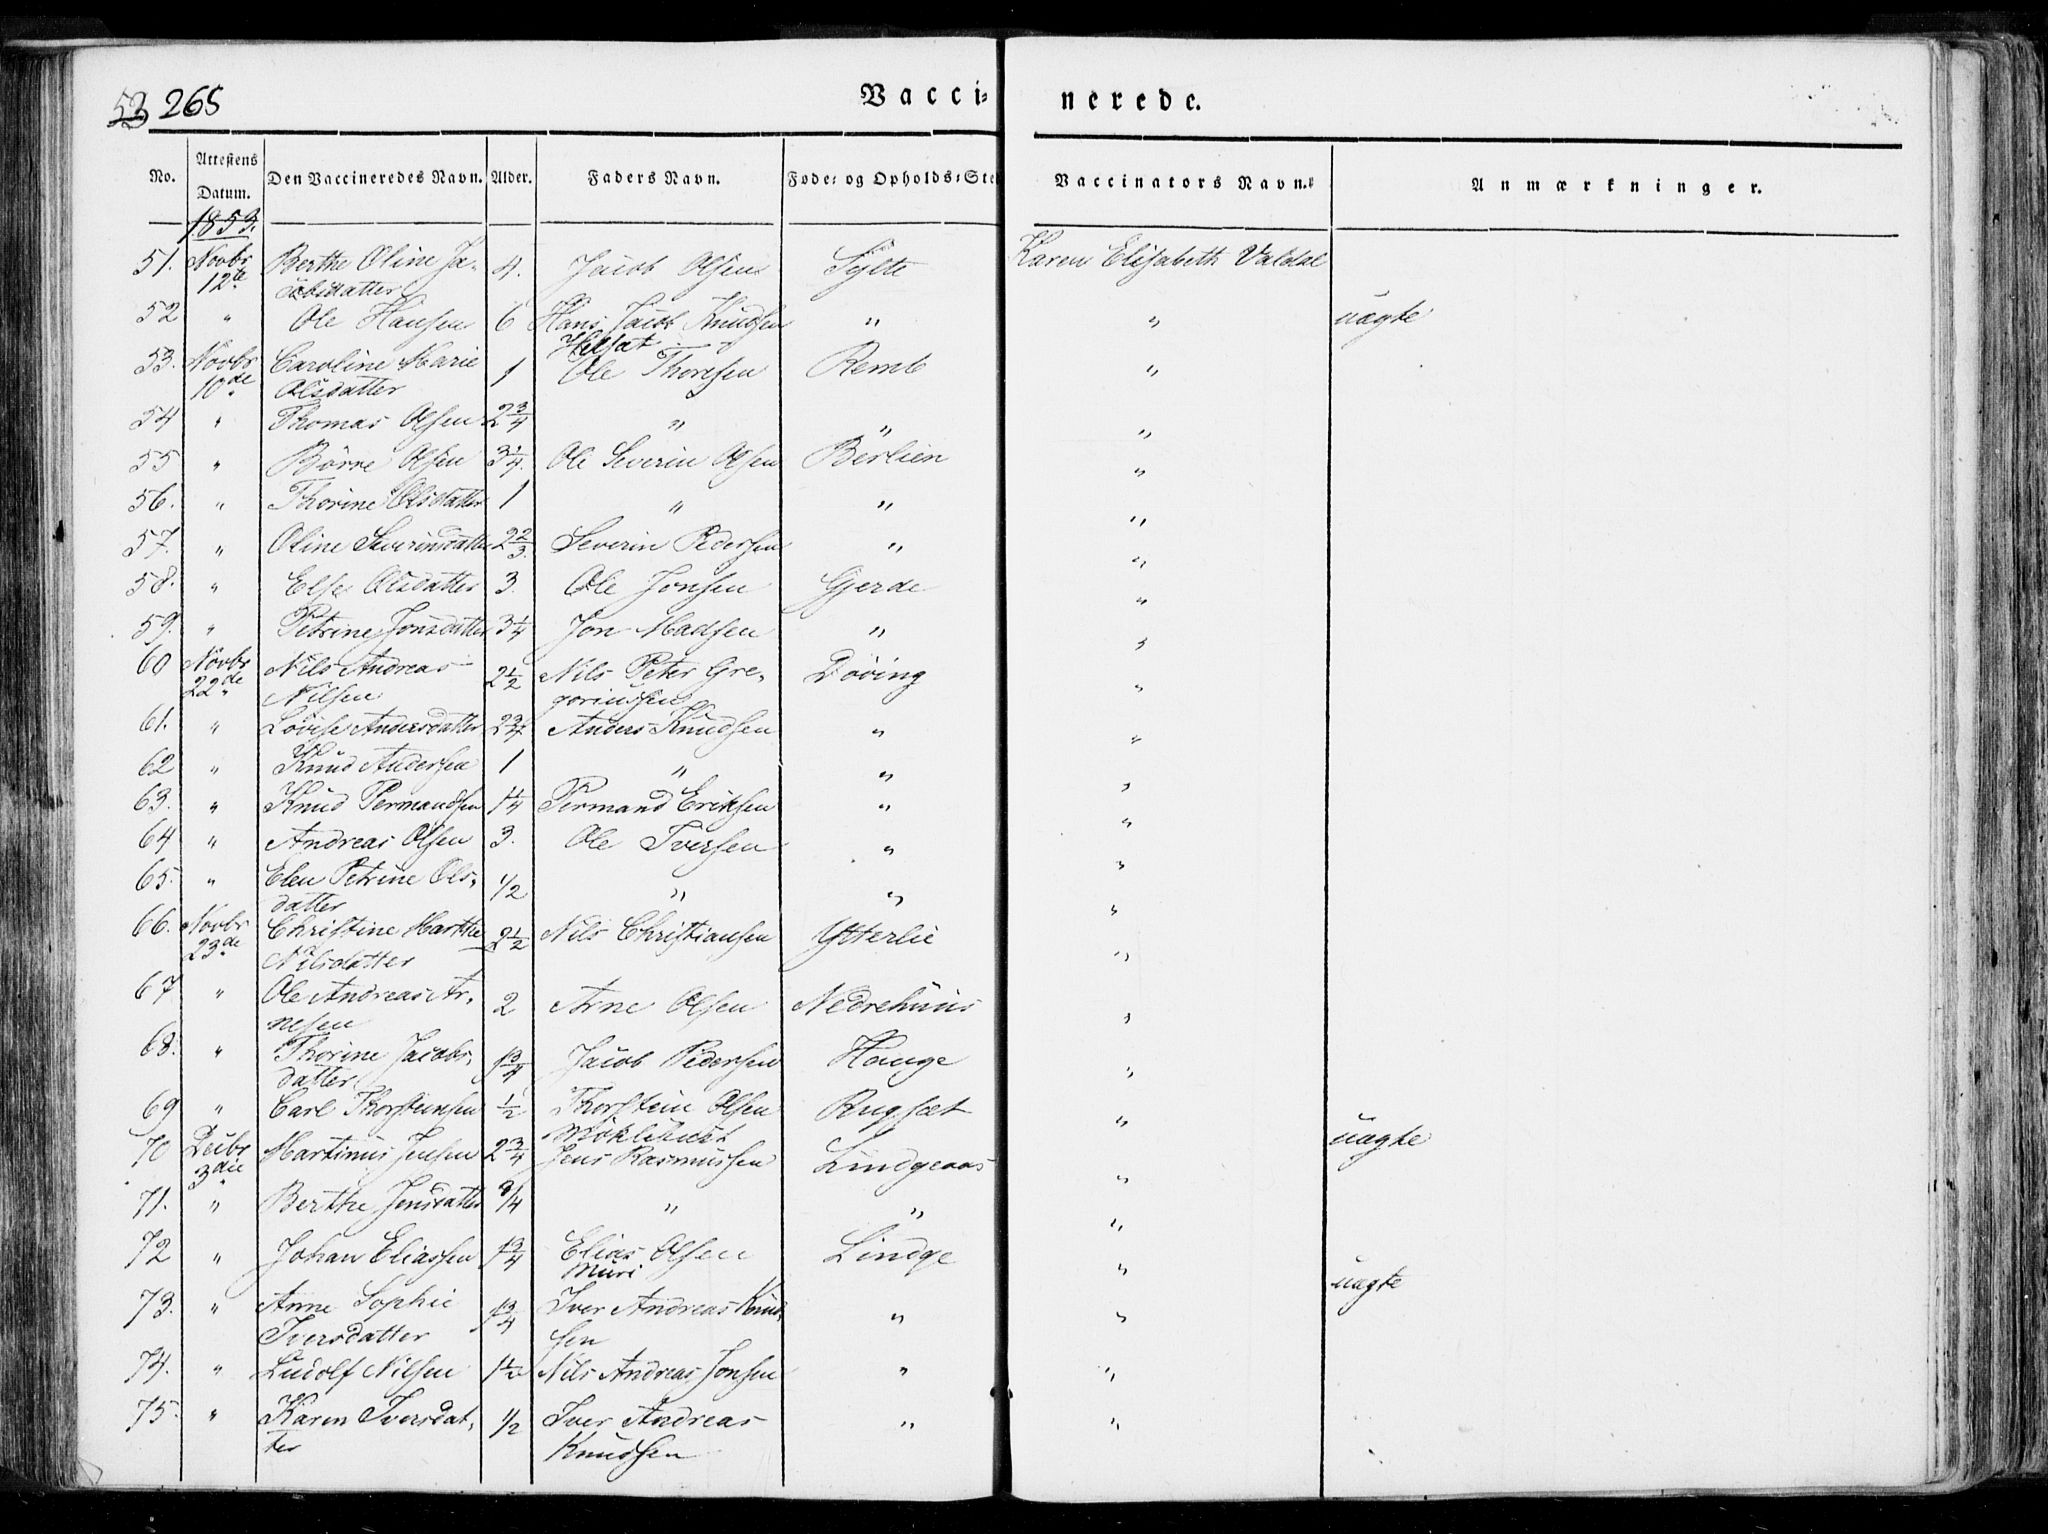 53 265
Vacci= nerede.
No. Attestens Datum. Den Vaccineredes Navn. Alder. Faders Navn. Føde= og Opholds=Ste Vaccinators Navn. Anmærkninger.
1853.
51. Novbr 12te Berthe Oline Ja-cobsdatter 4. Jacob Olsen Sylte Karen Elisabeth Valdal
52 " Ole Hansen 6 Hans Jacob Knudsen " " uægte
Helsæt
53. Novbr 10de Caroline Marie Olsdatter 1 Ole Thoresen Remb "
54 " Thomas Olsen 2 3/4 " " "
55 " Börre Olsen 3 1/4. Ole Severin Olsen Berlien "
56. " Thorine Olsdatter 1 " " "
57. " Oline Severinsdatter 2 2/3. Severin Pedersen " "
58. " Else Olsdatter 3. Ole Jonsen Gjerde "
59. " Petrine Jonsdatter 3 1/4 Jon Madsen " "
60 Novbr 22de Nils Andreas Nilsen 2 1/2 Nils Peter Gre-goriussen Döving "
61. " Lovise Andersdatter 2 3/4 Anders Knudsen " "
62 " Knud Andersen 1 " " "
63. " Knud Permandsen 1 1/4 Permand Eriksen " "
64 " Andreas Olsen 3. Ole Iversen " "
65. " Elen Petrine Ols-datter 1/2 " " "
66. Novbr 23de Christine Marthe Nilsdatter 2 1/2 Nils Christiansen Ytterlie "
67 " Ole Andreas Ar-nesen 2 Arne Olsen Nedrehuus "
68. " Thorine Jacobs-datter 1 3/4 Jacob Pedersen Hauge "
69 " Carl Thorsteinsen 1/2 Thorstein Olsen Rugsæt " uægte
Möklebust
70 Decbr 3die Martinus Jensen 2 3/4 Jens Rasmussen Lindgeaas "
71. " Berthe Jensdatter 3/4 " " "
72 " Johan Eliassen 1 3/4 Elias Olsen Lindge " uægte
Muri
73. " Anne Sophie Iversdatter 1 3/4 Iver Andreas Knud-sen " "
74. " Ludolf Nilsen 1 1/2 Nils Andreas Jonsen " "
75. " Karen Iversdat-ter 1/2 Iver Andreas Knudsen " "